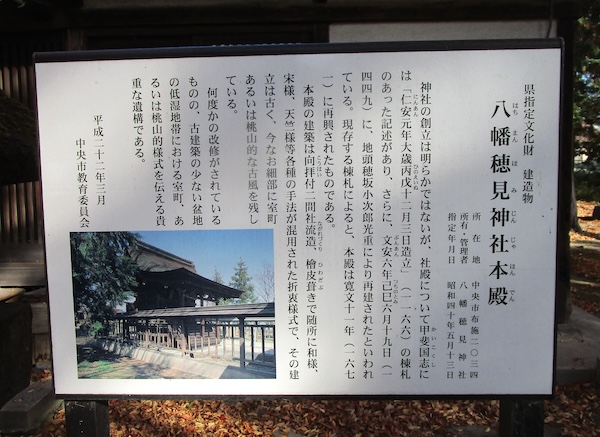 県指定文化財　建造物
八幡穂見神社本殿
はちまんほみじんじゃほんでん
所在地　中央市布施二〇三四
所有・管理者　八幡穂見神社
指定年月日　昭和四十年五月十三日
神社の創立は明らかではないが、社殿について甲斐国志に
かいこくし
は「仁安元年大歳丙戌十二月三日造立」（一一六六）の棟札
にんあん
ひのえいぬ
のあった記述があり、さらに、文安六年己巳六月十九日（一
ぶんあん
つちのとみ
四四九）に、地頭穂坂小次郎光重により再建されたといわれ
ている。現存する棟札によると、本殿は寛文十一年（一六七
一）に再興されたものである。
本殿の建築は向拝付二間社流造、檜皮葺きで随所に和様、
こうはい
ながれづくり
ひわだぶ
宋様、天竺様等各種の手法が混用された折衷様式で、その建
立は古く、今なお細部に室町あるいは桃山的な古風を残し
ている。
何度かの改修がされている
ものの、古建築の少ない盆地
の低湿地帯における室町、あ
るいは桃山的様式を伝える貴
重な遺構である。
平成二十二年三月
中央市教育委員会